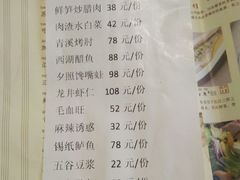 鲜笋炒腊肉 38 元/份
肉渣水白菜 42 元/份
青溪烤肘 78 元/份
西湖醋鱼 88 元/份
夕照馋嘴蛙 98 元/份
龙井虾仁 108 元/份
毛血旺 52 元/份
麻辣诱惑 32 元/份
锡纸鲈鱼 78 元/份
五谷豆浆 22 元/份